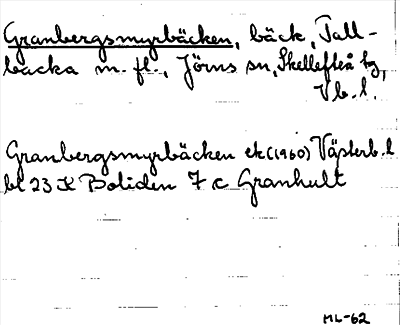 Granbergsmyrbäcken, bäck, Tall-
backa m. fl., Jörns sn, Skellefteå tg,
Vb. l.
Granbergsmyrbäcken ek (1960) Västerb. l
bl 23 K Boliden 7 c Granhult
ML-62